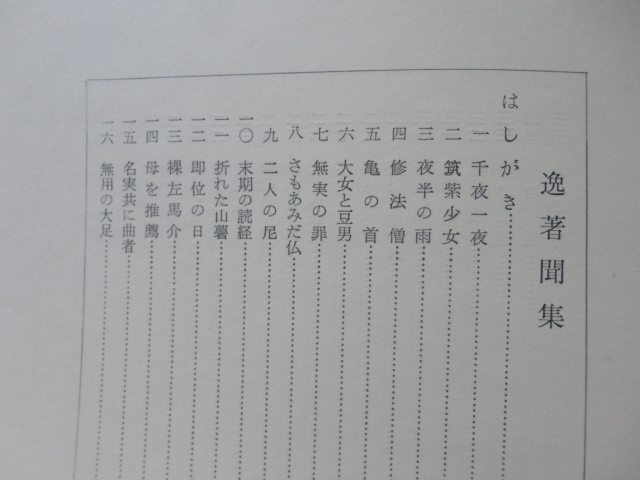 逸著聞集
はしがき
一 千夜一夜
二 筑紫少女
三 夜半の雨
四 修法僧
五 亀の首
六 大女と豆男
七 無実の罪
八 さもあみだ仏
九 二人の尼
一〇 末期の読経
一一 折れた山薯
一二 即位の日
一三 裸左馬介
一四 母を推薦
一五 名実共に曲者
一六 無用の大足